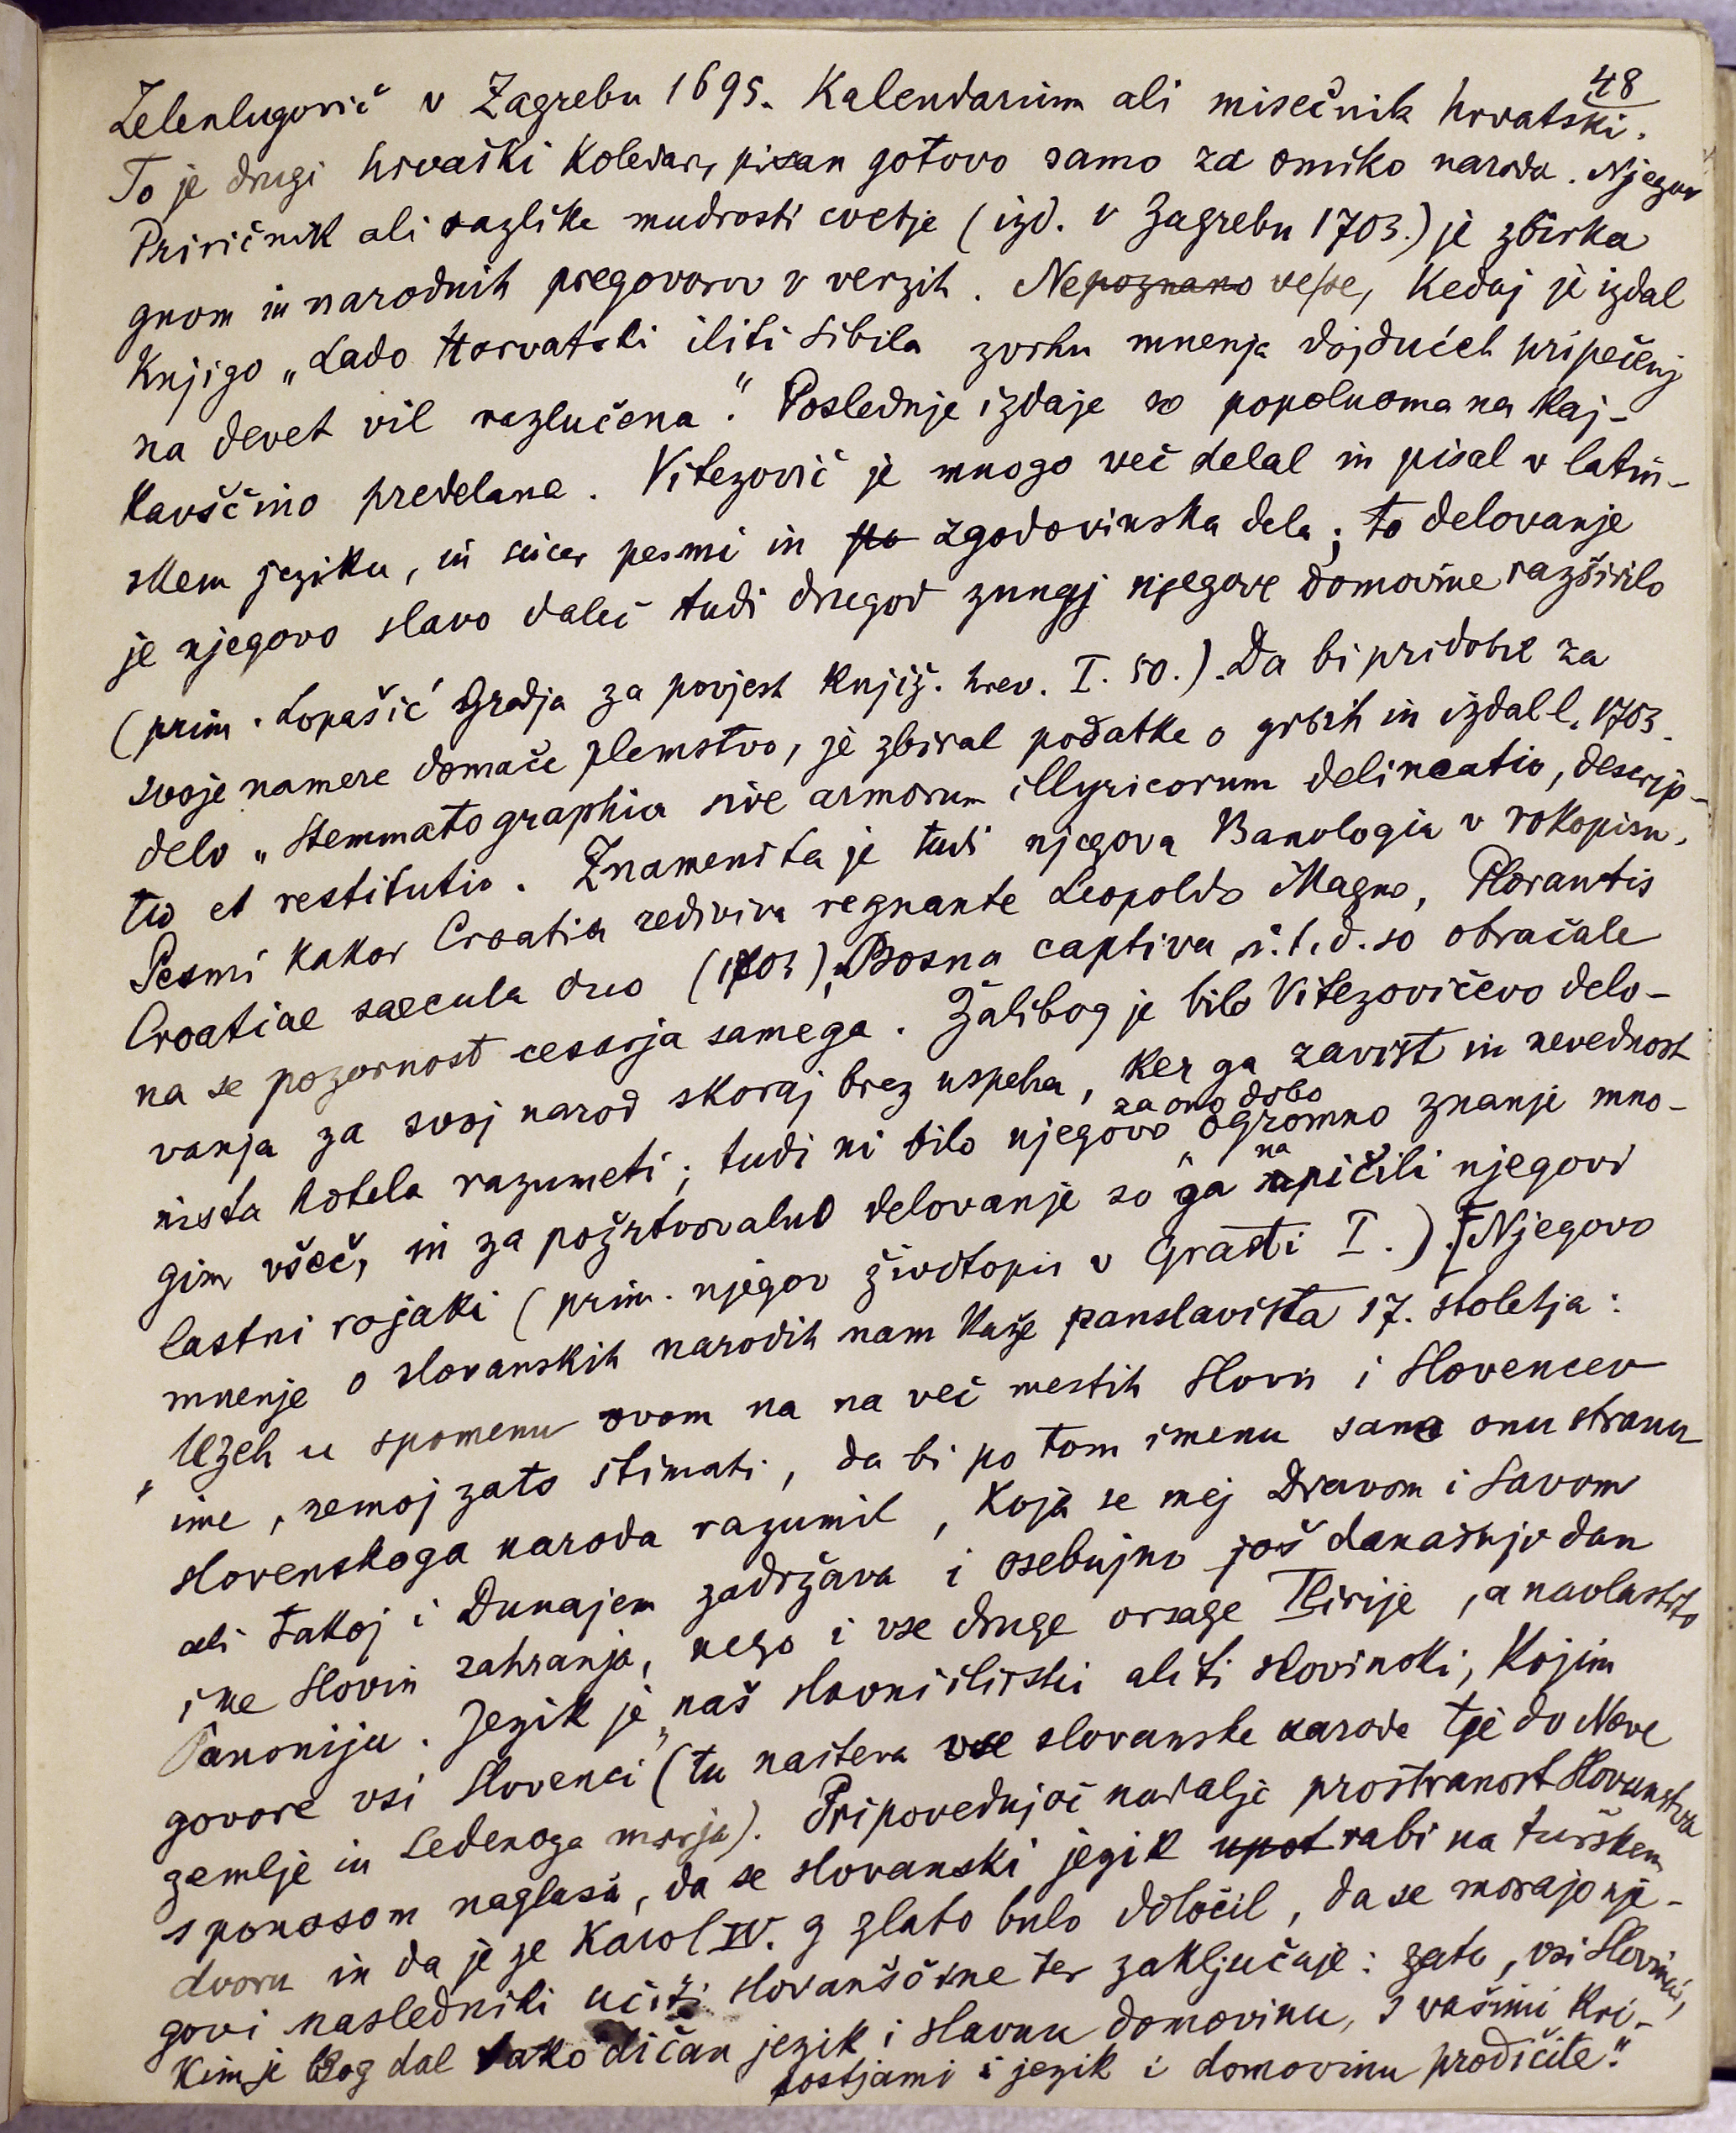 48
Zelenlugović v Zagrebu 1695. Kalendarium ali misečnik hrvatski.
To je drugi hrvaški Koledar, pisan gotovo samo za omiko naroda. Njegov
Priričnik ali razlike mudrosti cvetje (izd. v Zagrebu 1703.) je zbirka
gnom in narodnih pregovorov v verzih. Nepoznano ve se, kedaj je izdal
Knjigo „Lado Horvatski iliti Sibila zvrhu mnenja dojdućeh pripečenj
na devet vil razlučena." Poslednje izdaje so popolnoma na kaj-
kavščino predelane. Vitezović je mnogo več delal in pisal v latin-
skem jeziku, in sicer pesmi in zgodovinska dela; to delovanje
je njegovo slavo daleč tudi drugod zunaj njegove domovine razširilo
(prim. Lopašić Gradja za povjest Knjiž. hrv. I. 50.). Da bi pridobil za
svoje namere domače plemstvo, je zbiral podatke o grbih in izdal l. 1703.
delo „Stemmatographia sive armorum illyricorum delineatio, descrip-
tio et restitutio. Znamenita je tudi njegova Banologia v rokopisu.
Pesmi kakor Croatia rediviva regnante Leopoldo Magno, Plorantis
Croatiae saecula duo (1703), Bosna captiva i.t.d. so obračale
na se pozornost cesarja samega. Žalibog je bilo Vitezovičevo delo-
vanja za svoj narod skoraj brez uspeha, ker ga zavist in nevednost
nista hotela razumeti; tudi ni bilo njegovo za ono dobo ogromno znanje mno-
gim všeč, in za požrtvovalno delovanje so ga napičili njegovi
lastni rojaki (prim. njegov životopis v Grasti I.). [Njegovo
mnenje o slovanskih narodih nam kaže panslavista 17. stoletja:
„Uzeh u spomenu ovom na na več mestih Slovin i Slovencev
ime, nemoj zato štimati, da bi po tom imenu samo onu stranu
slovenskoga naroda razumil, koja se mej Dravom i Savom
ali takoj i Dunajem zadržava i osebujno još današnjo dan
ime Slovin zahranja, nego i vse druge orsage Ilirije, a navlastito
Panoniju. Jezik je „naš slavni ilirski aliti slovinski, kojim
govore vsi Slovenci (tu našteva vse slovanske narode tje do Nove
zemlje in Ledenoga morja). Pripovedujoč nadalje prostranost Slovanstva
s ponosom naglaša, da se slovanski jezik upotrabi na turškem
dvoru in da je že Karol IV. z zlato bulo določil, da se morajo nje-
govi nasledniki učiti slovanščine ter zaključuje: zato, vsi Slovinci,
kim je Bog dal tako dičan jezik i slavnu domovinu, s vašimi kri-
postjami i jezik i domovinu prodičite."